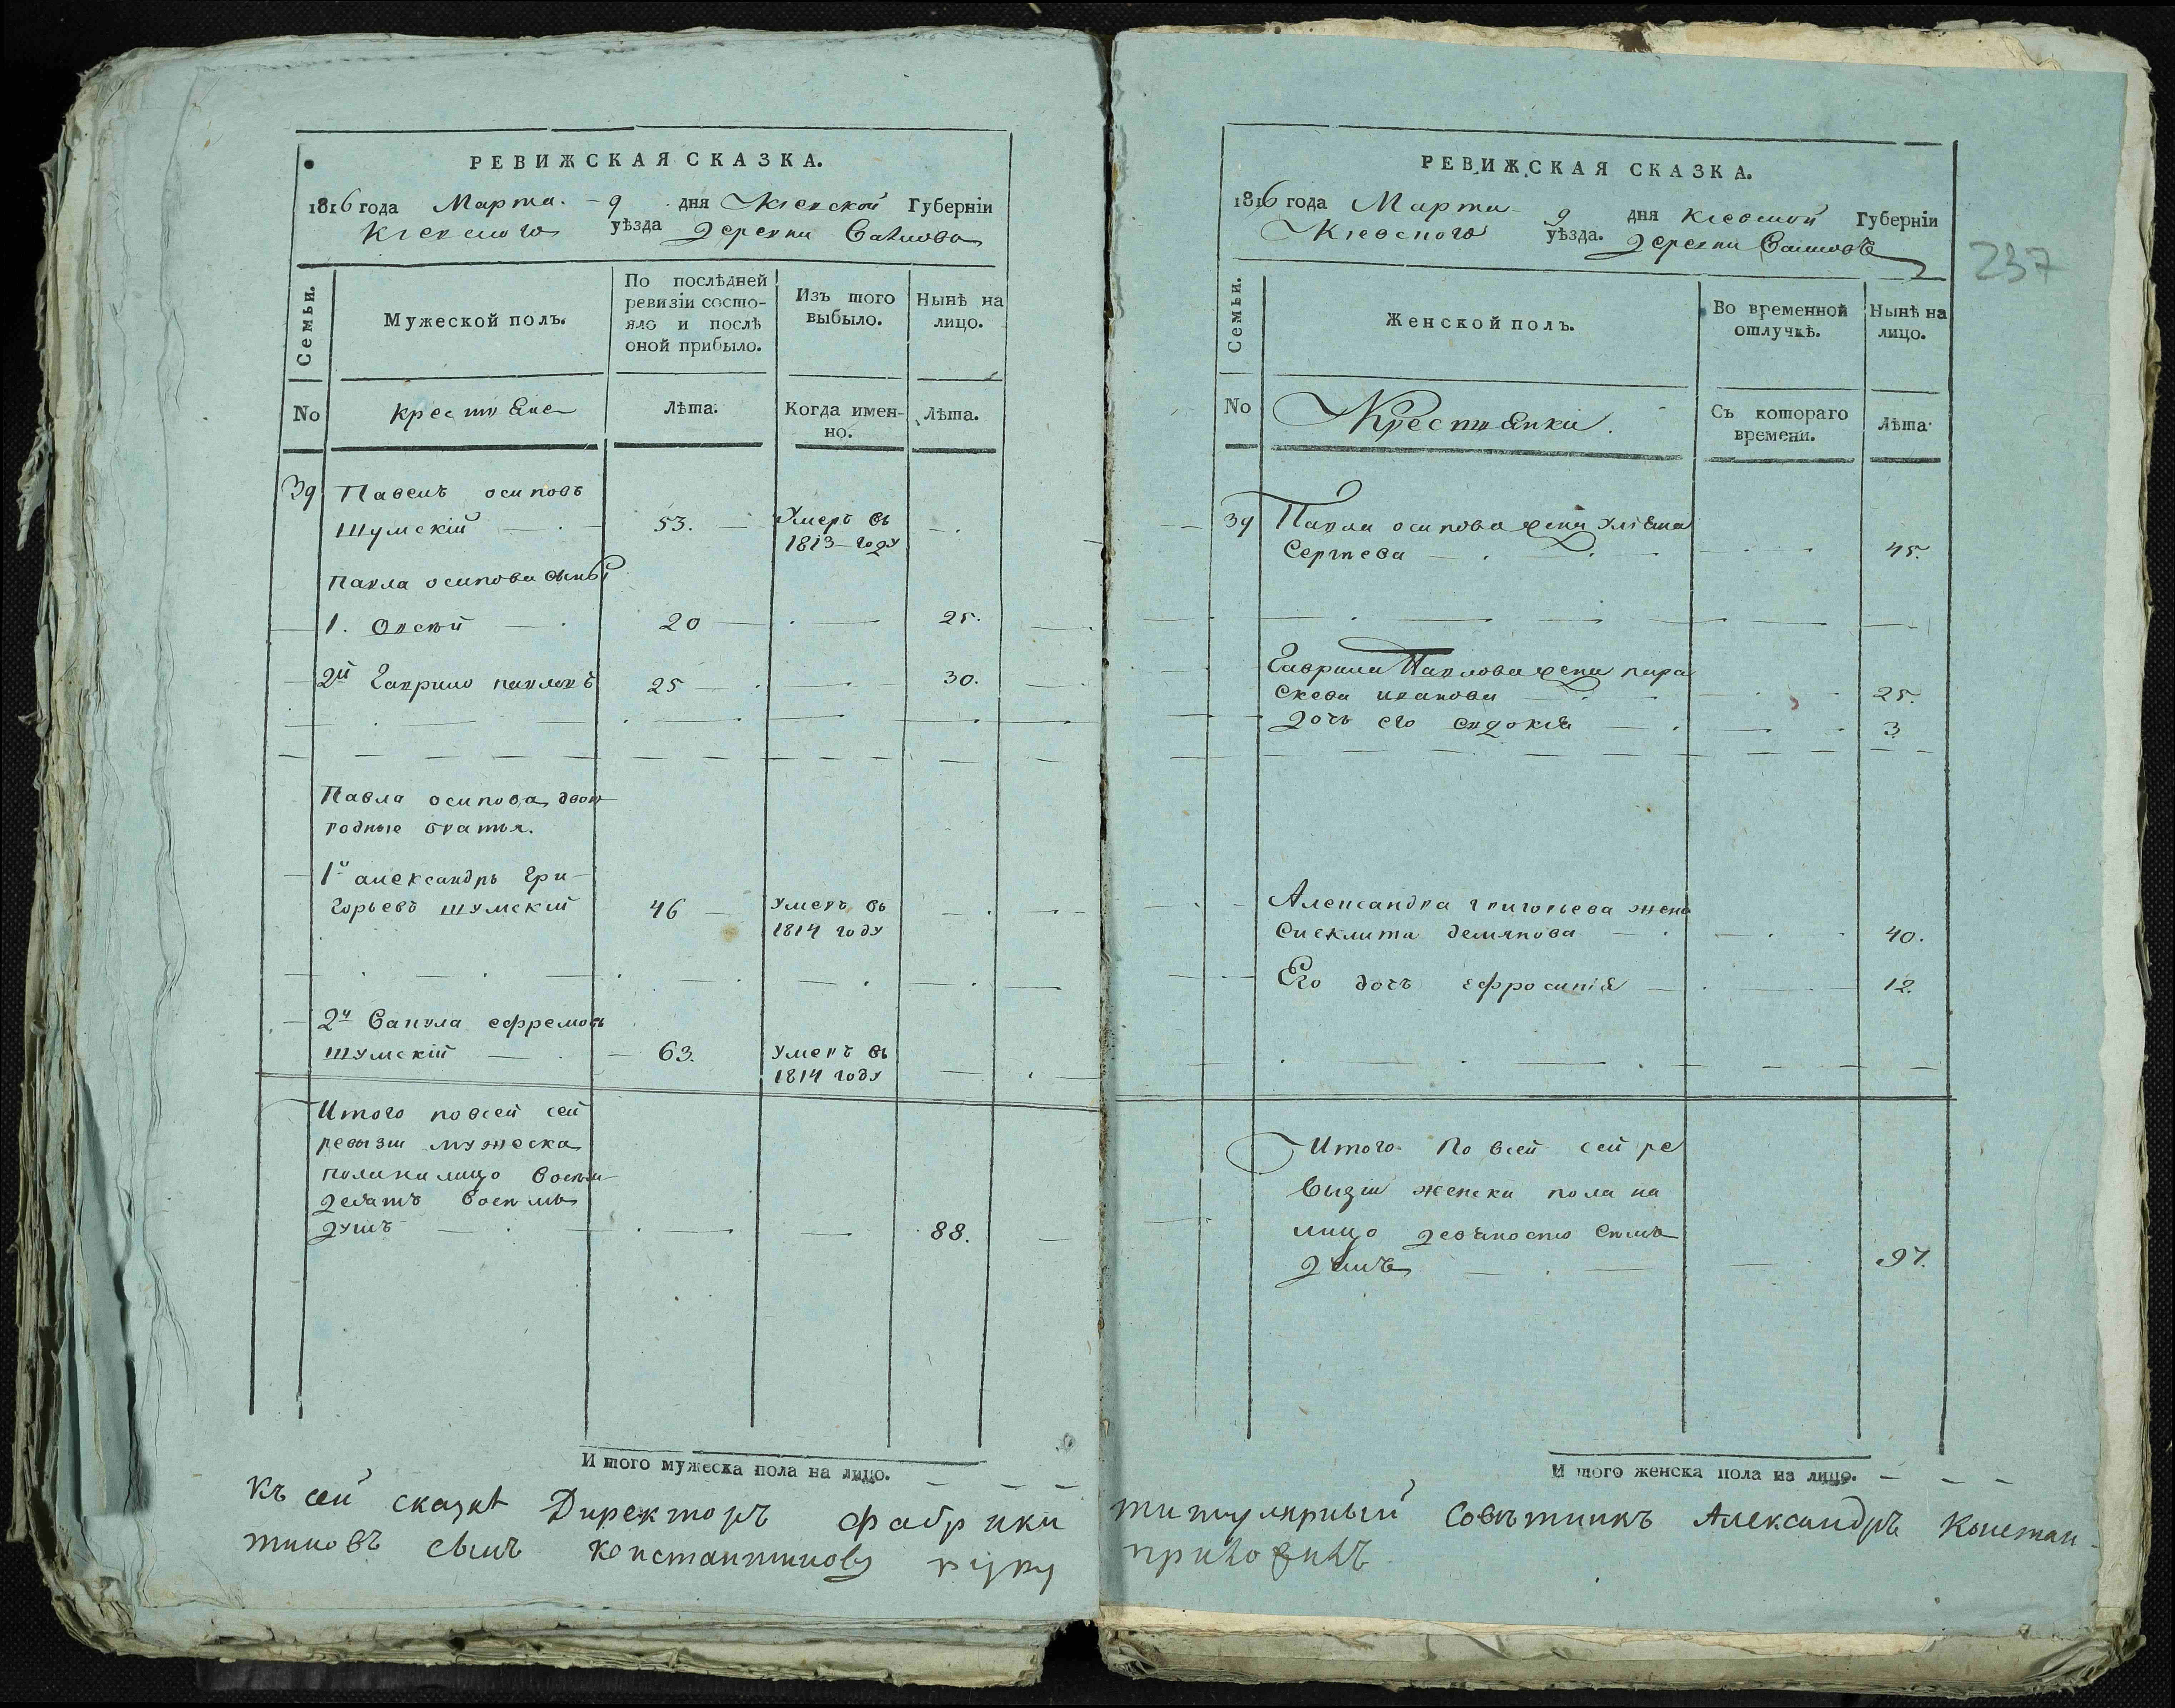 РЕВИЖСКАЯ СКАЗКА.
1816 года Марта. 9 дня Кіевской Губерніи
Кіевского уѣзда деревни
Семьи.
Мужеской полъ.
По послѣдней ревизіи состо-
яло и послѣ оной прибыло.
Изъ того выбыло.
Нынѣ на лицо.
No
крестяне
Лѣта.
Когда имен-
но.
Лѣта.
39 Павелъ осиповъ
Шумскій 53. Умеръ въ
1813 году
Павла осипова сыны
1. 20 25.
2й Гаврило павловъ 25 30.
Павла осипова двою
родные братья.
1й александръ гри-
горьевъ шумскій 46 Умеръ въ
1814 году
2й Вакула ефремовъ
шумскій 63. Умеръ въ
1814 году
Итого по всей сей
ревизіи мужеска
пола на лицо восемь
десятъ восемь
душъ 88.
И того мужеска пола на лицо.
РЕВИЖСКАЯ СКАЗКА.
1816 года Марта 9 дня Кіевской Губерніи
Кіевского уѣзда. деревни
237
Семьи.
Женской полъ.
Во временной отлучкѣ.
Нынѣ на лицо.
No
Крестянки.
Съ котораго времени.
Лѣта
39 Павла осипова жена Уліяна
Сергѣева 45.
Гаврила Павлова жена пара
скева иванова 25.
дочь его евдокія 3
Александра григорьева жена
демянова 40.
Его дочь ефросинія 12.
Итого по всей сей ре
визіи женска пола на
лицо девяносто семь
душъ 97.
И того женска пола на лицо.
Къ сей сказкѣ Директоръ фабрики титулярный Совѣтникъ Александръ Констан-
тиновъ сынъ руку приложилъ